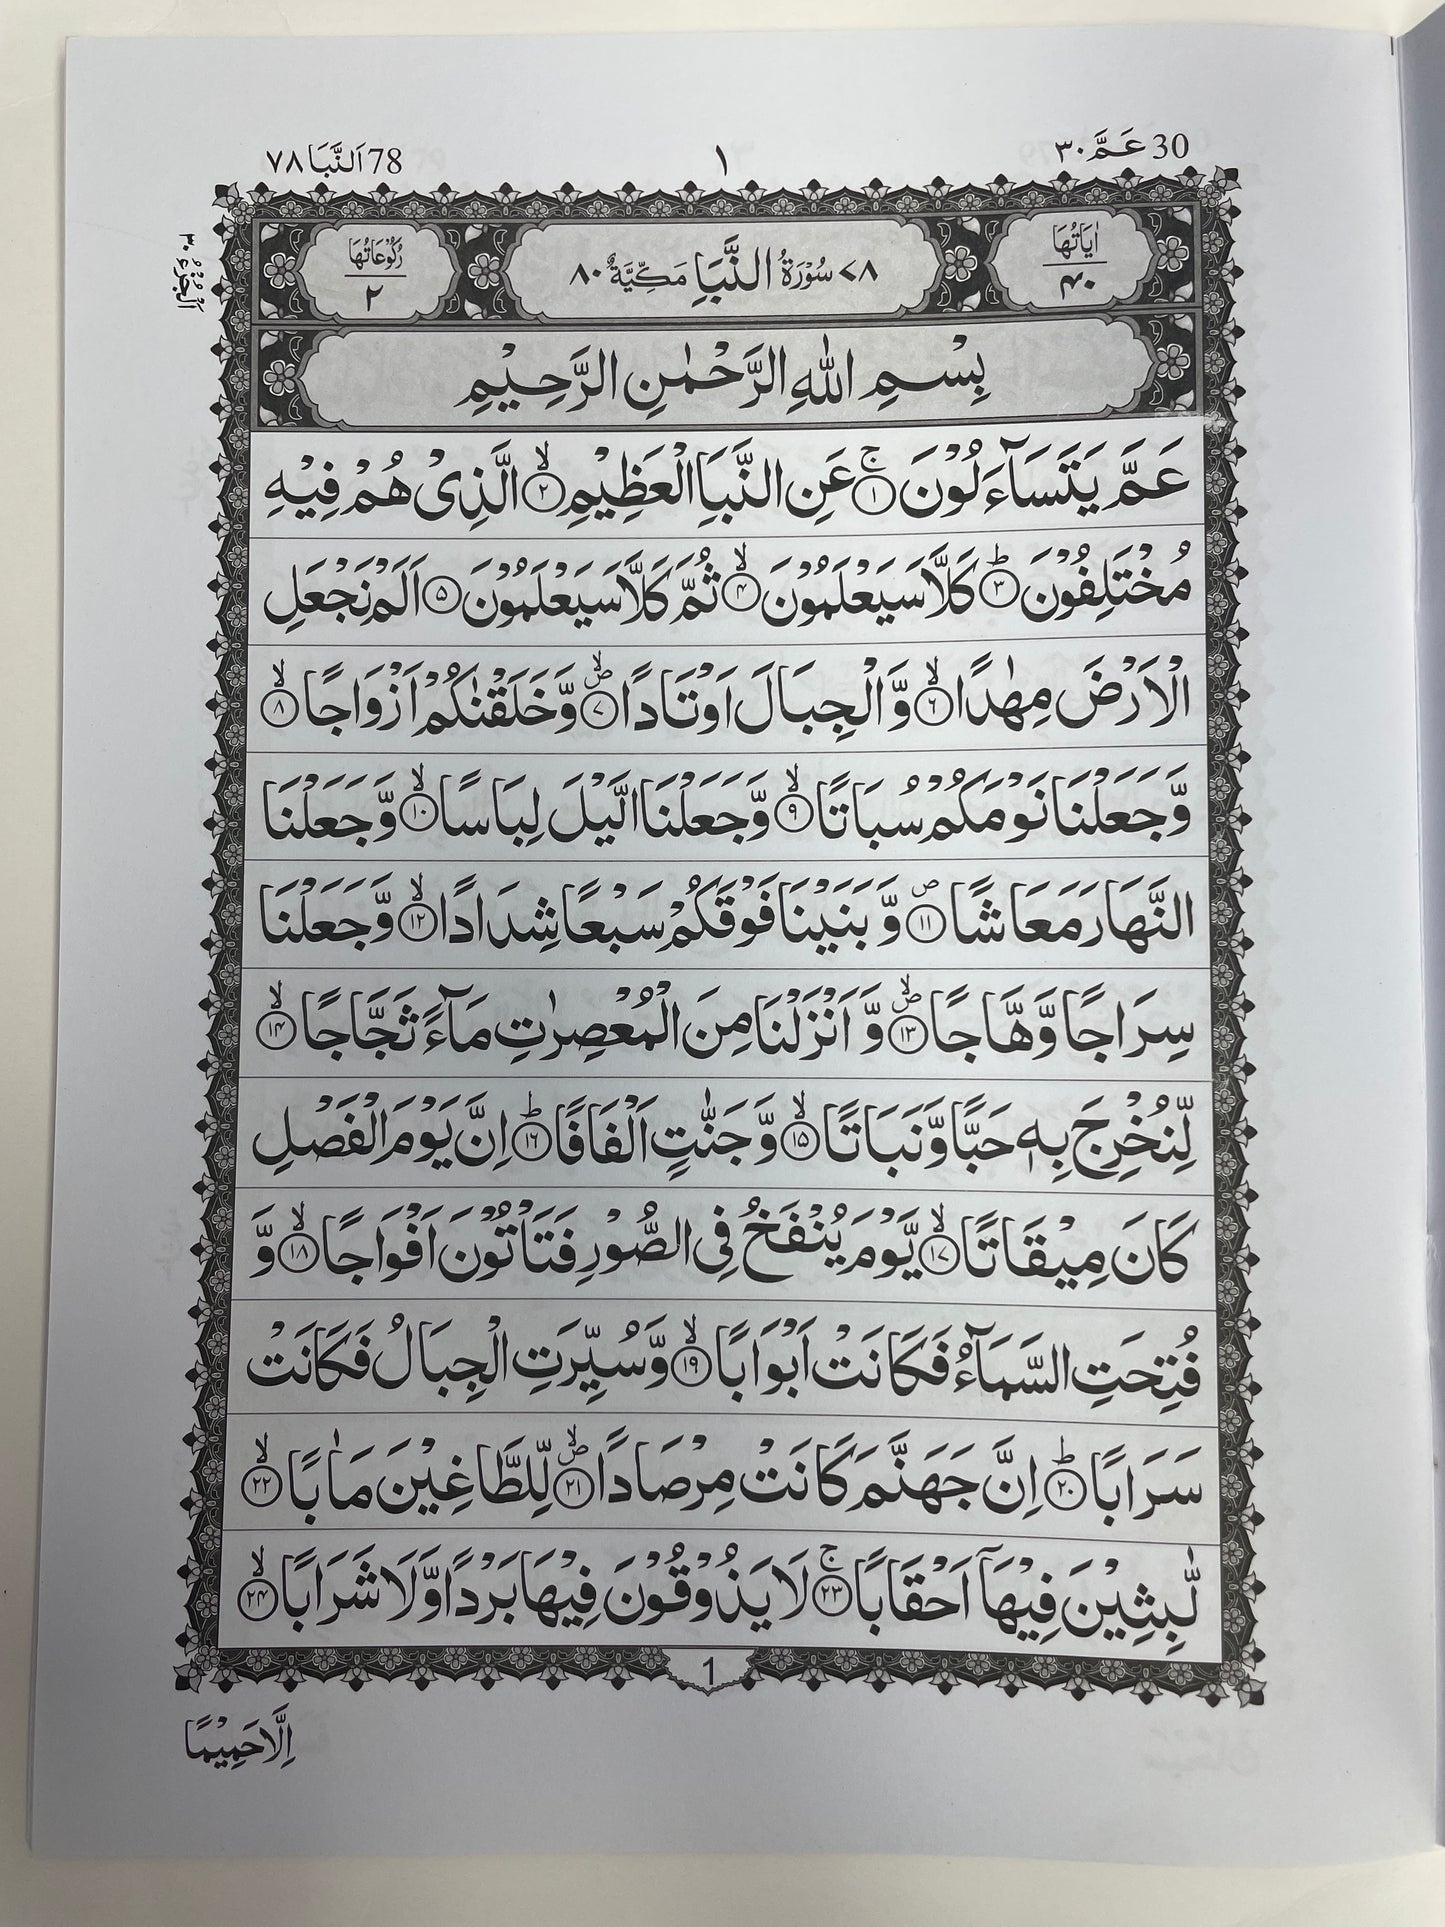 30 عَمَّ ٣٠
١
78 اَلنَّبَا ٧٨
اٰيَاتُهَا ۴۰
٧٨ سُوْرَةُ النَّبَاِ مَكِّيَّةٌ ٨٠
رُكُوْعَاتُهَا ٢
اَلْجُزْءُ ٣٠
بِسْمِ اللهِ الرَّحْمٰنِ الرَّحِيْمِ
عَمَّ يَتَسَآءَلُوْنَ ۚ‏﴿۱﴾ عَنِ النَّبَاِ الْعَظِيْمِ ۙ‏﴿۲﴾ الَّذِىْ هُمْ فِيْهِ
مُخْتَلِفُوْنَ ؕ‏﴿۳﴾ كَلَّا سَيَعْلَمُوْنَ ۙ‏﴿۴﴾ ثُمَّ كَلَّا سَيَعْلَمُوْنَ ﴿۵﴾ اَلَمْ نَجْعَلِ
الْاَرْضَ مِهٰدًا ۙ‏﴿۶﴾ وَّالْجِبَالَ اَوْتَادًا ۪ۙ‏﴿۷﴾ وَّخَلَقْنٰكُمْ اَزْوَاجًا ۙ‏﴿۸﴾
وَّجَعَلْنَا نَوْمَكُمْ سُبَاتًا ۙ‏﴿۹﴾ وَّجَعَلْنَا الَّيْلَ لِبَاسًا ۙ‏﴿۱۰﴾ وَّجَعَلْنَا
النَّهَارَ مَعَاشًا ۪‏﴿۱۱﴾ وَّبَنَيْنَا فَوْقَكُمْ سَبْعًا شِدَادًا ۙ‏﴿۱۲﴾ وَّجَعَلْنَا
سِرَاجًا وَّهَّاجًا ۪ۙ‏﴿۱۳﴾ وَّاَنْزَلْنَا مِنَ الْمُعْصِرٰتِ مَآءً ثَجَّاجًا ۙ‏﴿۱۴﴾
لِّنُخْرِجَ بِهٖ حَبًّا وَّنَبَاتًا ۙ‏﴿۱۵﴾ وَّجَنّٰتٍ اَلْفَافًا ؕ‏﴿۱۶﴾ اِنَّ يَوْمَ الْفَصْلِ
كَانَ مِيْقَاتًا ۙ‏﴿۱۷﴾ يَّوْمَ يُنْفَخُ فِى الصُّوْرِ فَتَاْتُوْنَ اَفْوَاجًا ۙ‏﴿۱۸﴾ وَّ
فُتِحَتِ السَّمَآءُ فَكَانَتْ اَبْوَابًا ۙ‏﴿۱۹﴾ وَّسُيِّرَتِ الْجِبَالُ فَكَانَتْ
سَرَابًا ؕ‏﴿۲۰﴾ اِنَّ جَهَنَّمَ كَانَتْ مِرْصَادًا ۪ۙ‏﴿۲۱﴾ لِّلطَّاغِيْنَ مَاٰبًا ۙ‏﴿۲۲﴾
لّٰبِثِيْنَ فِيْهَآ اَحْقَابًا ۚ‏﴿۲۳﴾ لَا يَذُوْقُوْنَ فِيْهَا بَرْدًا وَّلَا شَرَابًا ۙ‏﴿۲۴﴾
1
اِلَّا حَمِيْمًا